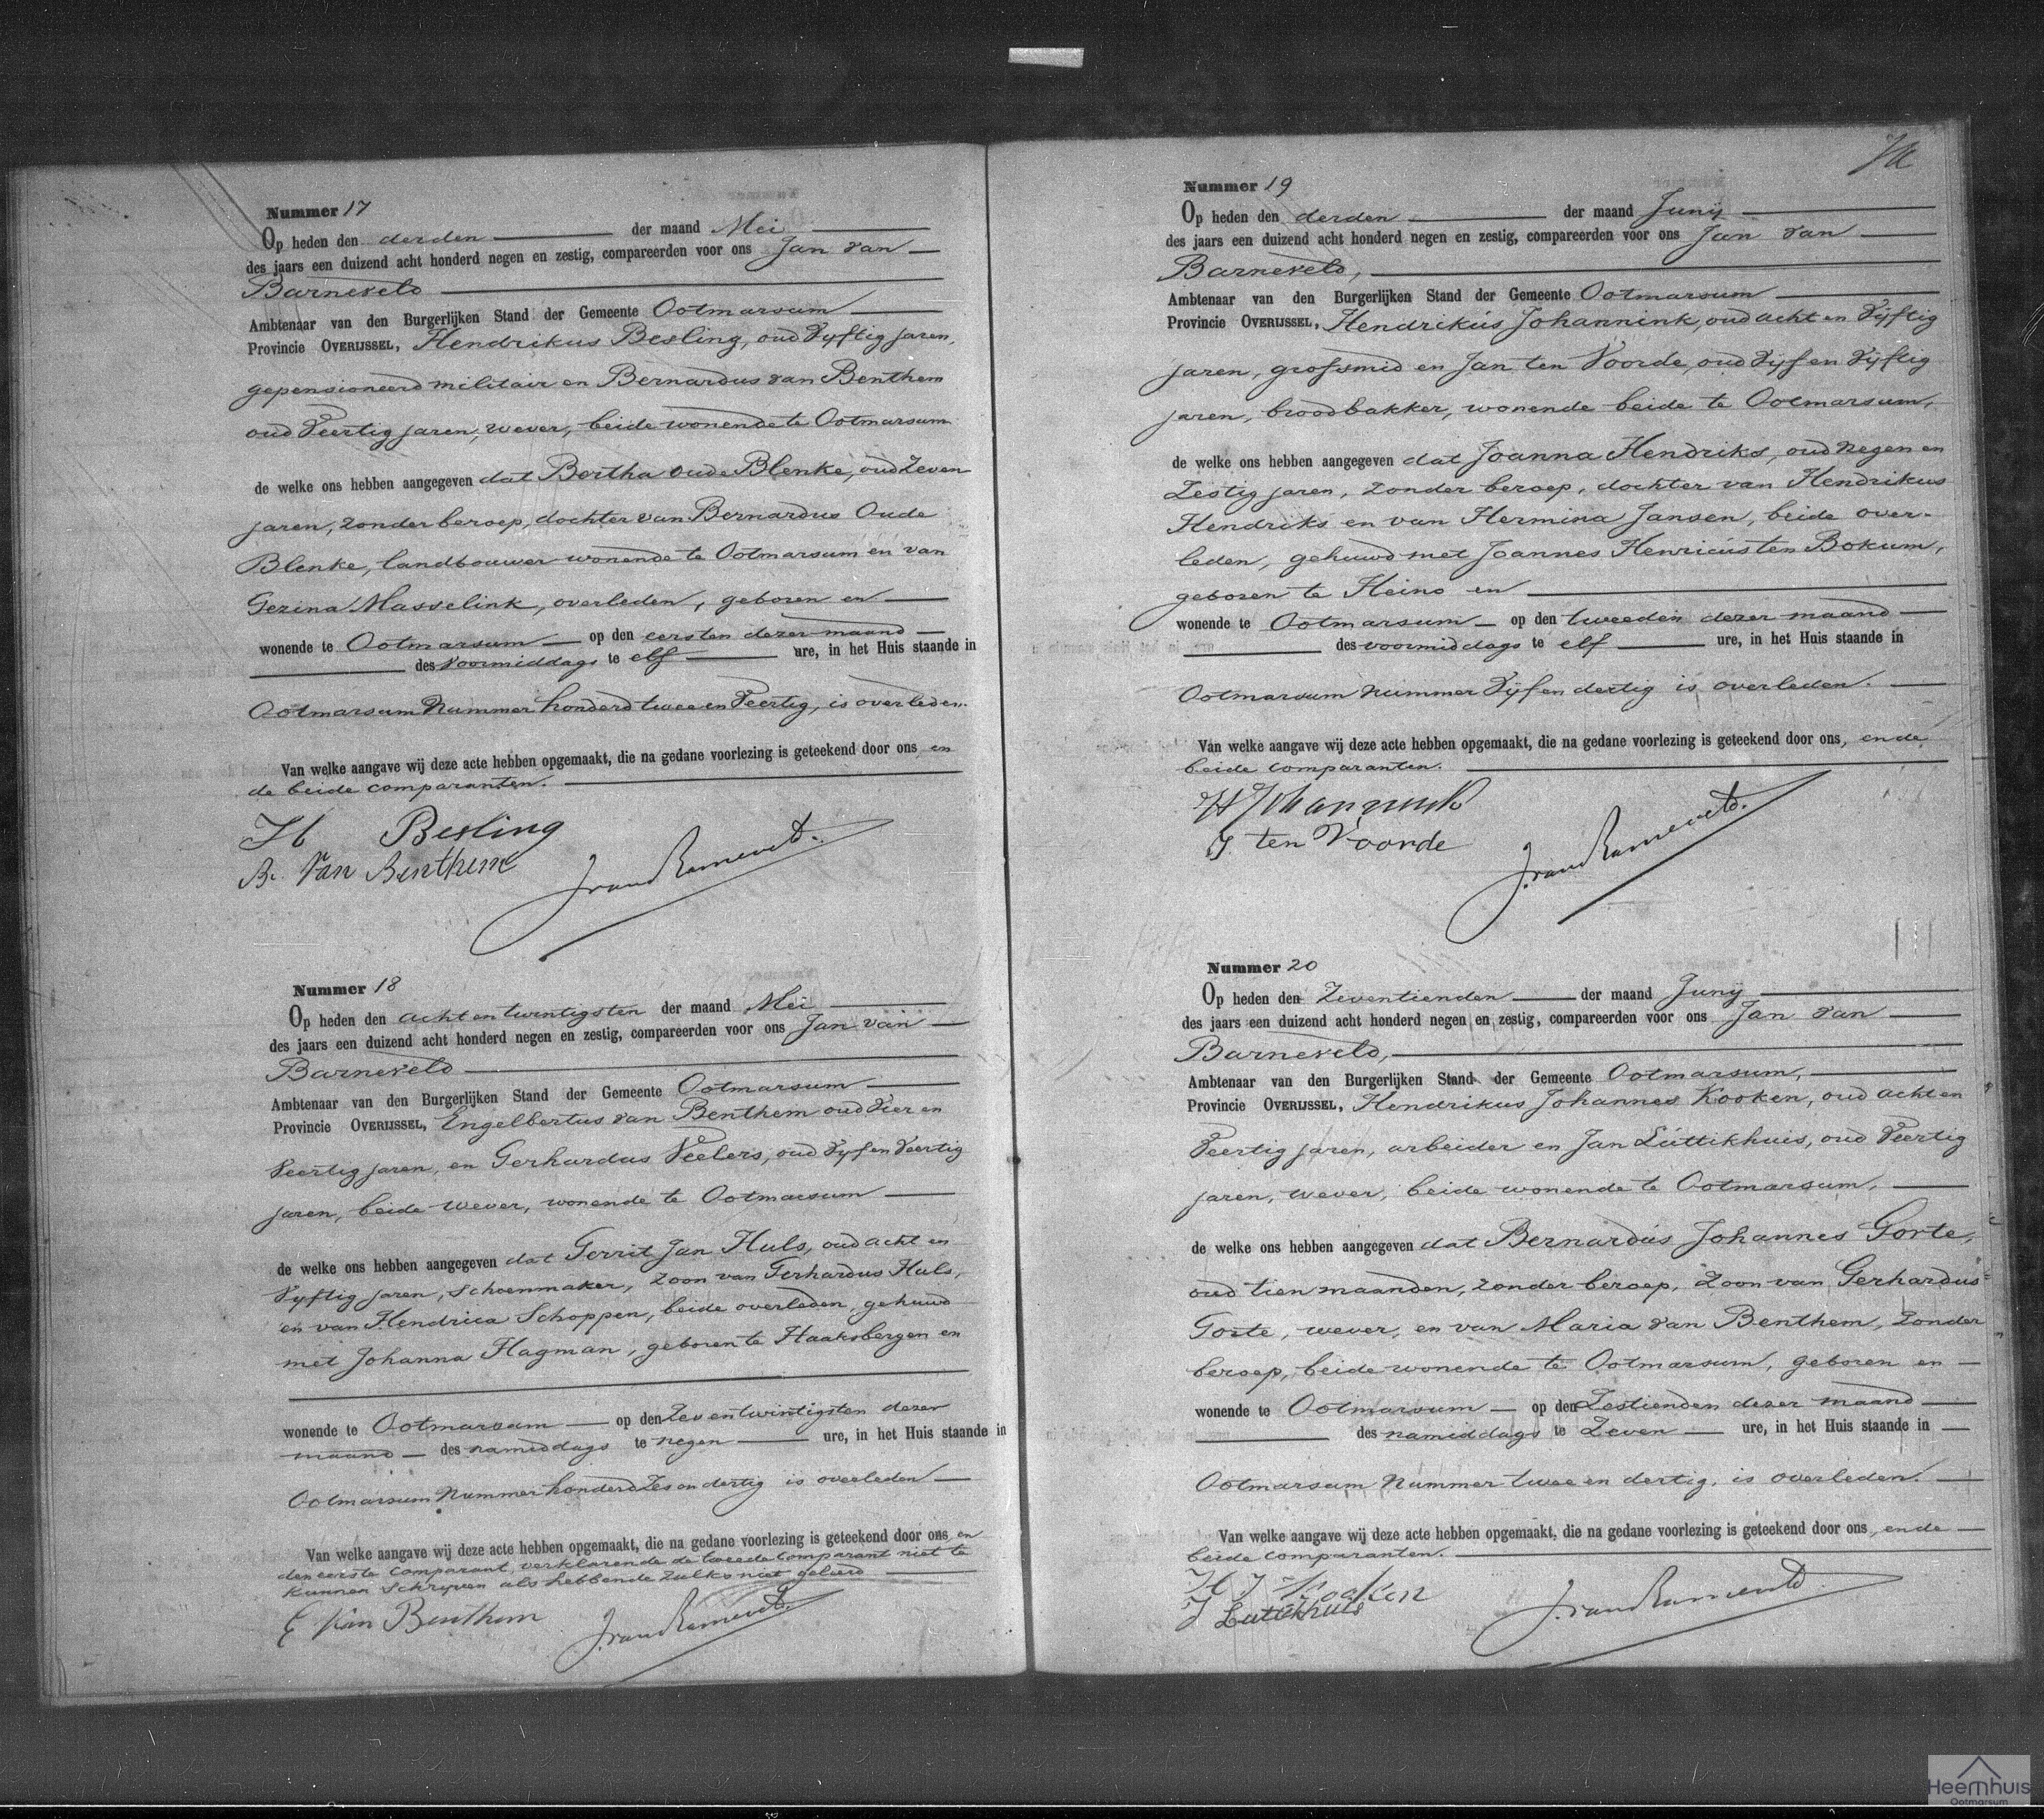 Nummer 17
Op heden den derden der maand Mei
des jaars een duizend acht honderd negen en zestig, compareerden voor ons Jan van
Barneveld
Ambtenaar van den Burgerlijken Stand der Gemeente Ootmarsum
Provincie OVERIJSSEL, Hendrikus Besling, oud Vyftig jaren,
gepensioneerd militair en Bernardus van Benthem
oud Veertig jaren, wever, beide wonende te Ootmarsum
de welke ons hebben aangegeven dat Bertha oude Blenke, oud Zeven
jaren, zonder beroep, dochter van Bernardus Oude
Blenke, landbouwer wonende te Ootmarsum en van
Gezina Masselink, overleden, geboren en
wonende te Ootmarsum op den eersten dezer maand
des Voormiddags te elf ure, in het Huis staande in
Ootmarsum Nummer honderd twee en Veertig, is overleden.
Van welke aangave wij deze acte hebben opgemaakt, die na gedane voorlezing is geteekend door ons, en
de beide comparanten.
H Besling
B. Van Benthem
J. van Barneveld.
Nummer 18
Op heden den acht en twintigsten der maand Mei
des jaars een duizend acht honderd negen en zestig, compareerden voor ons Jan van
Barneveld
Ambtenaar van den Burgerlijken Stand der Gemeente Ootmarsum
Provincie OVERIJSSEL, Engelbertus van Benthem oud Vier en
Veertig jaren, en Gerhardus Veelers, oud Vyf en Veertig
jaren, beide wever, wonende te Ootmarsum
de welke ons hebben aangegeven dat Gerrit Jan Huls, oud acht en
Vyftig jaren, Schoenmaker, zoon van Gerhardus Huls,
en van Hendrica Schoppen, beide overleden, gehuwd
met Johanna Hagman, geboren te Haaksbergen en
wonende te Ootmarsum op den Zeventwintigsten dezer
maand des namiddags te negen ure, in het Huis staande in
Ootmarsum Nummer honderd Zes en dertig is overleden
Van welke aangave wij deze acte hebben opgemaakt, die na gedane voorlezing is geteekend door ons, en
den eerste Comparant, verklarende de tweede Comparant niet te
kunnen Schryven als hebbende zulks niet geleerd
E Van Benthem
J. van Barneveld.
Nummer 19
Op heden den derden der maand Junÿ
des jaars een duizend acht honderd negen en zestig, compareerden voor ons Jan van
Barneveld,
Ambtenaar van den Burgerlijken Stand der Gemeente Ootmarsum
Provincie OVERIJSSEL, Hendrikus Johannink, oud acht en Vÿftig
jaren, grofsmid en Jan ten Voorde, oud Vÿf en Vÿftig
jaren, broodbakker, wonende beide te Ootmarsum,
de welke ons hebben aangegeven dat Joanna Hendriks, oud negen en
Zestig jaren, zonder beroep, dochter van Hendrikus
Hendriks en van Hermina Jansen, beide over-
leden, gehuwd met Joannes Henricus ten Bokum,
geboren te Heino en
wonende te Ootmarsum op den tweeden dezer maand
des voormiddags te elf ure, in het Huis staande in
Ootmarsum nummer Vÿf en dertig is overleden.
Van welke aangave wij deze acte hebben opgemaakt, die na gedane voorlezing is geteekend door ons, en de
beide comparanten.
H Johannink
J. ten Voorde
J. van Barneveld.
Nummer 20
Op heden den Zeventienden der maand Junÿ
des jaars een duizend acht honderd negen en zestig, compareerden voor ons Jan van
Barneveld,
Ambtenaar van den Burgerlijken Stand der Gemeente Ootmarsum,
Provincie OVERIJSSEL, Hendrikus Johannes Kooken, oud acht en
Veertig jaren, arbeider en Jan Luttikhuis, oud Veertig
jaren, wever, beide wonende te Ootmarsum,
de welke ons hebben aangegeven dat Bernardus Johannes Gorte,
oud tien maanden, zonder beroep, zoon van Gerhardus
Gorte, wever, en van Maria van Benthem, zonder
beroep, beide wonende te Ootmarsum, geboren en
wonende te Ootmarsum op den Zestienden dezer maand
des namiddags te Zeven ure, in het Huis staande in
Ootmarsum Nummer twee en dertig, is overleden.
Van welke aangave wij deze acte hebben opgemaakt, die na gedane voorlezing is geteekend door ons, en de
beide comparanten.
H J Kooken
J Luttikhuis
J. van Barneveld.
Heemhuis
Ootmarsum